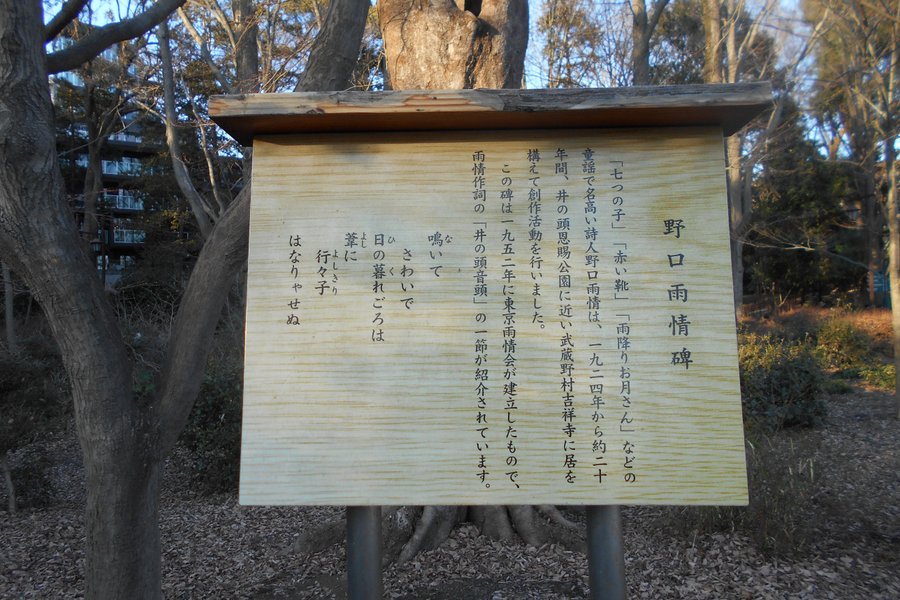 野口雨情碑
「七つの子」「赤い靴」「雨降りお月さん」などの
童謡で名高い詩人野口雨情は、一九二四年から約二十
年間、井の頭恩賜公園に近い武蔵野村吉祥寺に居を
構えて創作活動を行いました。
この碑は一九五二年に東京雨情会が建立したもので、
雨情作詞の「井の頭音頭」の一節が紹介されています。
鳴いて
さわいで
日の暮れごろは
葦に
行々子
はなりゃせぬ